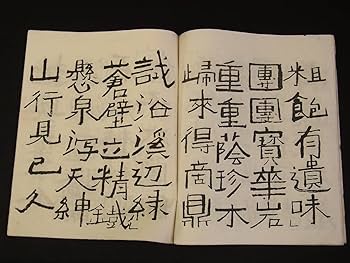 粗飽有遺味」
團團寶華岩
重重蔭珍木
歸來得商鼎
試浴溪辺緑」
蒼壁立精鐵
懸泉泻天紳
山行見已久